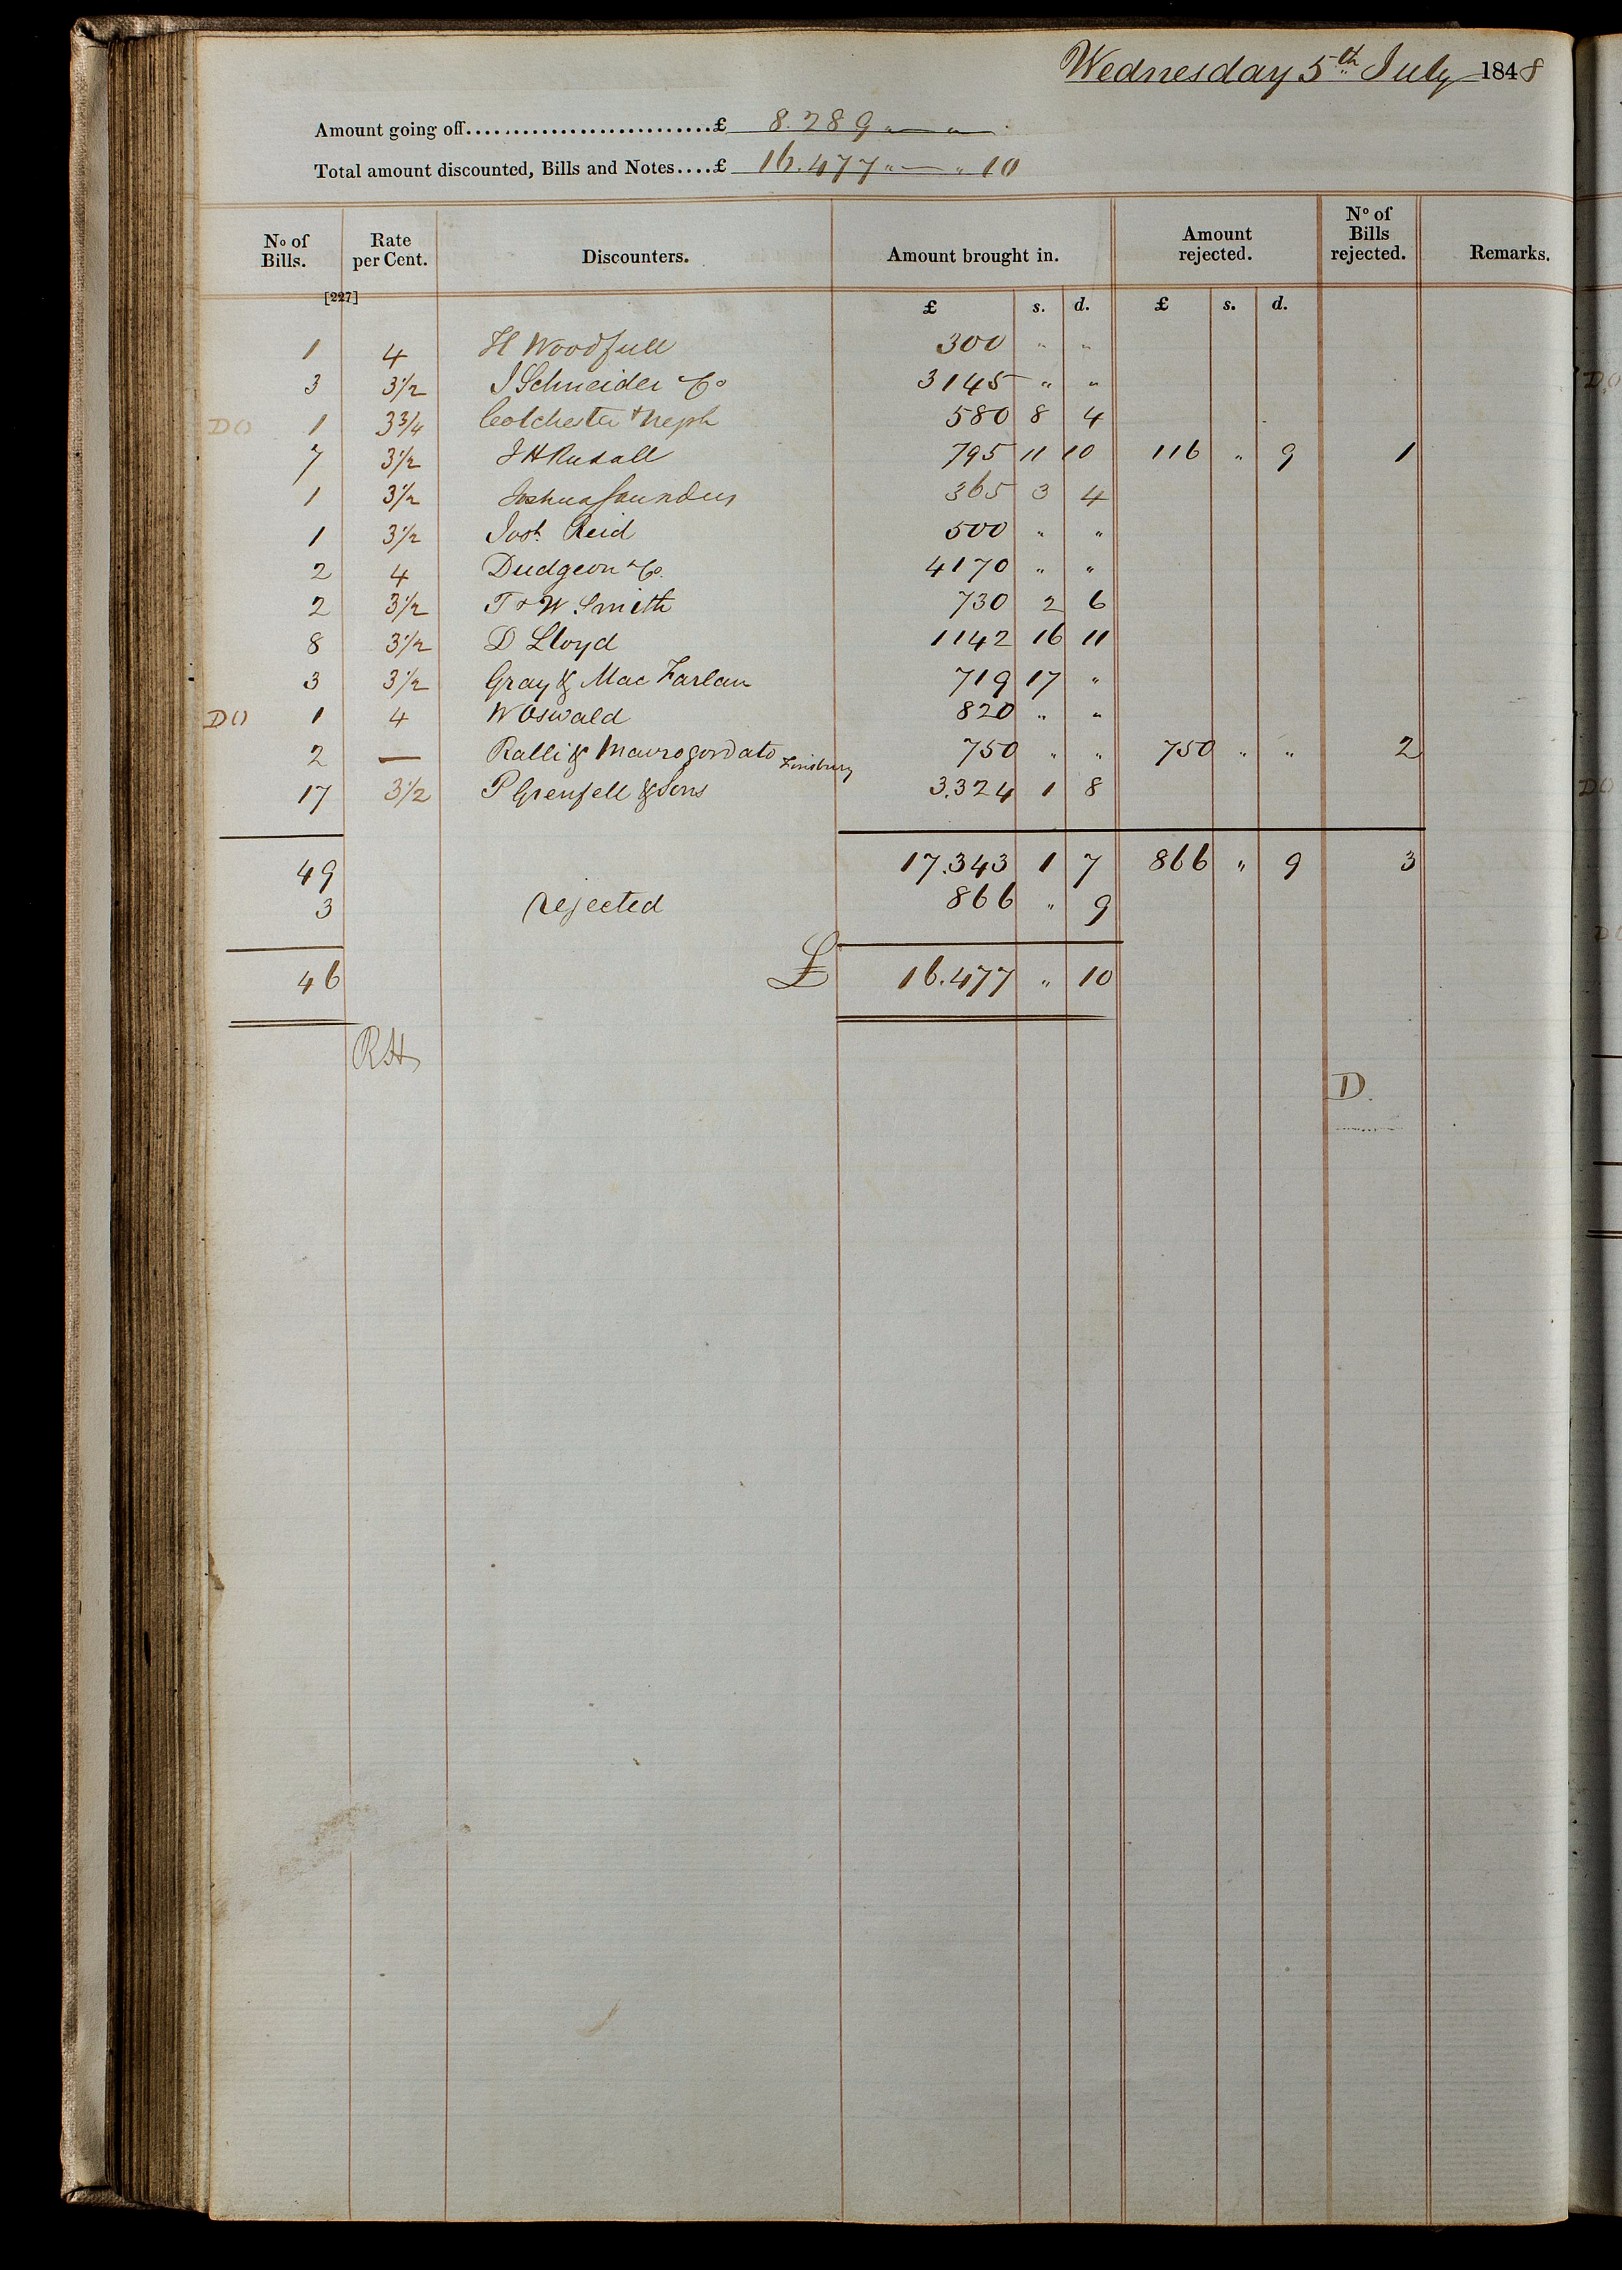 Wednesday 5th July 1848
Amount going off..........................£ 8.289 " — " —
Total amount discounted, Bills and Notes....£ 16.477 " — " 10
No of Bills. Rate per Cent. Discounters. Amount brought in. Amount rejected. No of Bills rejected. Remarks.
[227]
£ s. d. £ s. d.
1 4 H Woodfull 300 " "
3 3½ J Schneider & Co 3145 " "
DO 1 3¾ Colchester & Neph 580 8 4
7 3½ J H Rudall 795 11 10 116 " 9 1
1 3½ Joshua Saunders 365 3 4
1 3½ Josh Reid 500 " "
2 4 Dudgeon & Co. 4170 " "
2 3½ T & W. Smith 730 2 6
8 3½ D Lloyd 1142 16 11
3 3½ Gray & Mac Farlan 719 17 "
DO 1 4 W Oswald 820 " "
2 — Ralli & Mavrogordato Finsbury 750 " " 750 " " 2
17 3½ P Grenfell & Sons 3.324 1 8
49 17.343 1 7 866 " 9 3
3 rejected 866 " 9
46 £ 16.477 " 10
RH
D.
DO
DO